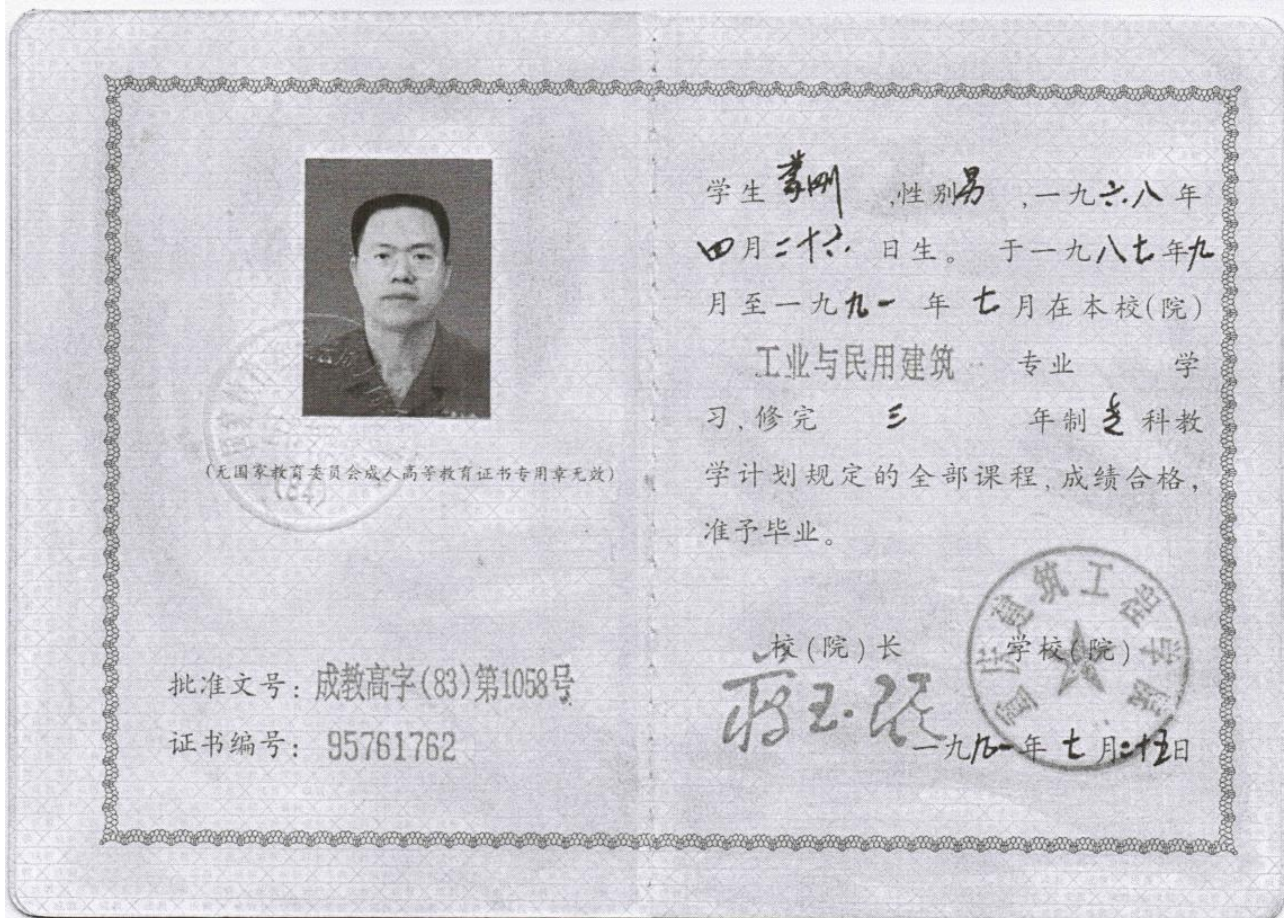 (无国家教育委员会成人高等教育证书专用章无效)
批准文号：成教高字(83)第1058号
证书编号：95761762
学生 刚 ,性别男 ,一九六八年
四月二十六日生。 于一九八七年九
月至一九九一年七月在本校(院)
工业与民用建筑 专业 学
习,修完 三 年制 专 科教
学计划规定的全部课程,成绩合格,
准予毕业。
校(院)长 学校(院)
重庆建筑工程学院
一九九一年七月二十五日